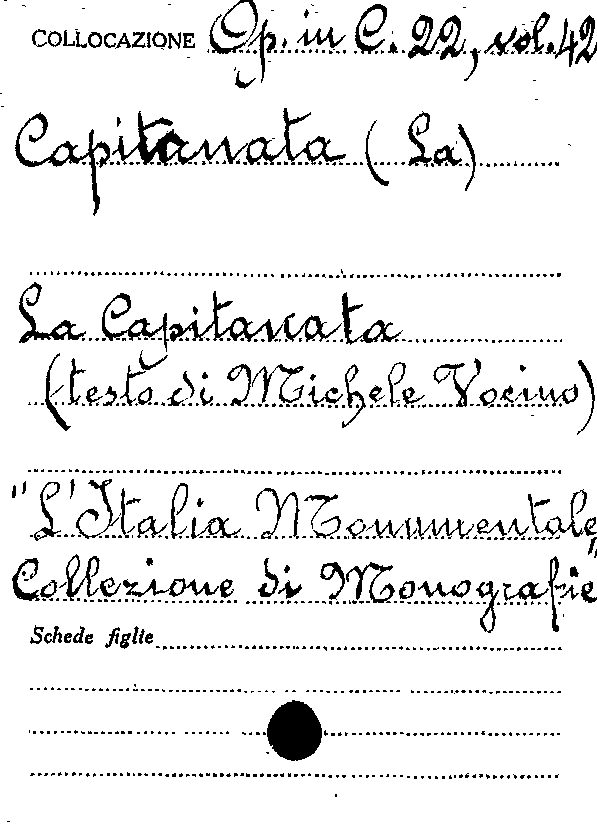 COLLOCAZIONE Op. in C. 22, vol. 42
Capitanata (La)
La Capitanata
(testo di Michele Vocino)
"L'Italia Monumentale
Collezione di Monografie"
Schede figlie